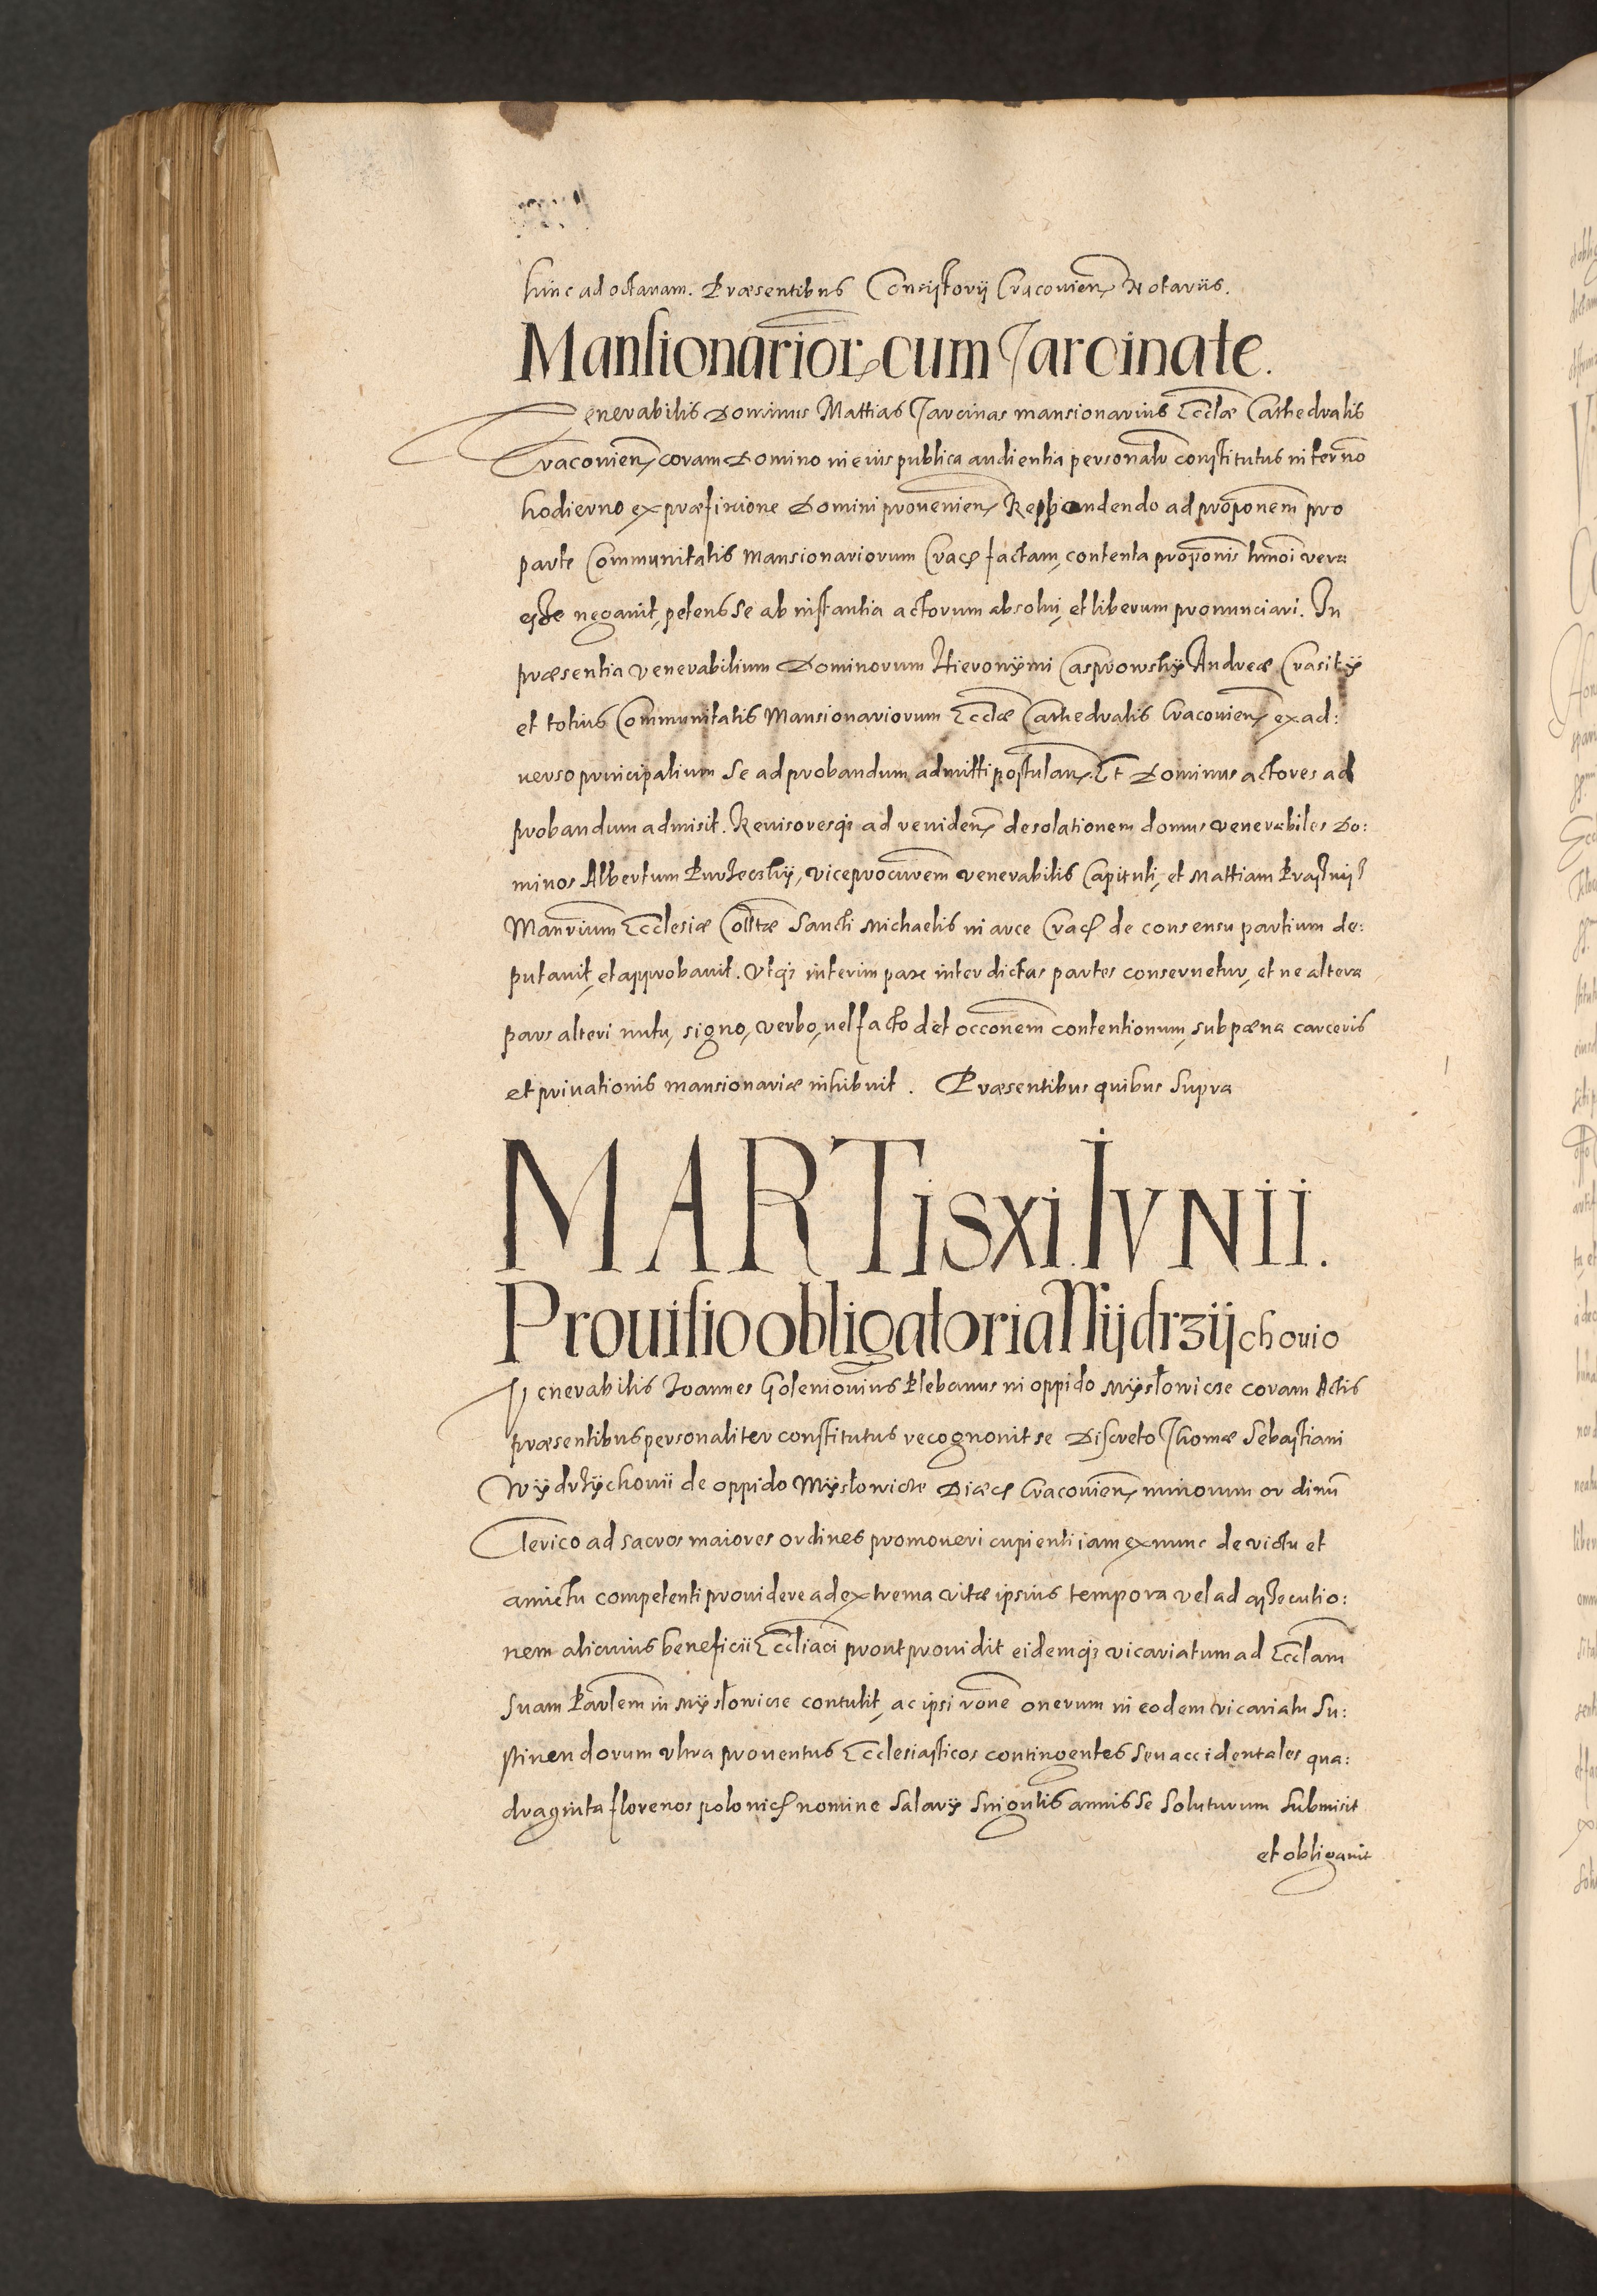 hinc ad octauam. Præsentibus Consistorij Cracouien Notariis.
Mansionarior cum Jarcinate.
Venerabilis Dominus Mattias Jarcinas mansionarius Ecclæ Cathedralis
Cracouien coram Domino in eius publica audientia personalr constitutus in termo
hodierno ex præfixione Domini prouenien Respondendo ad proponem pro
parte Communitatis Mansionariorum Crac factam, contenta proponis hmoi vera
esse negauit, petens se ab instantia actorum absolui, et liberum pronunciari. In
præsentia venerabilium Dominorum Hieronymi Casprowsky Andreæ Crasity
et totius Communitatis Mansionariorum Ecclæ Cathedralis Cracouien ex ad:
uerso principalium se ad probandum admitti postulan. Et Dominus actores ad
probandum admisit. Reuisoresq3 ad reuiden desolationem domus venerabiles Do:
minos Albertum Purzecsky, viceprocurem venerabilis Capituli, et Mattiam
Manrium Ecclesiæ Colltæ Sancti Michaelis in arce Crac de consensu partium de:
putauit, et approbauit. Vtq3 interim pax inter dictas partes conseruetur, et ne altera
pars alteri nutu, signo, verbo, uel facto det occonem contentionum, sub pæna carceris
et priuationis mansionariæ inhibuit. Præsentibus quibus supra
MARTIS XI. IVNII.
Prouisio obligatoria Wijdrzijchouio
Venerabilis Ioannes Goleniouius Plebanus in oppido Mysłowicze coram Actis
præsentibus personaliter constitutus recognouit se Discreto Thomæ Sebastiani
Wydrzychouii de oppido Mysłowicze Diæc Cracouien minorum ordinu
Clerico ad sacros maiores ordines promoueri cupienti iam ex nunc de victu et
amictu competenti prouidere ad extrema vitæ ipsius tempora vel ad assecutio:
nem alicuius beneficii Eccliaci prout prouidit eidemq3 vicariatum ad Ecclam
suam Parlem in Mysłowicze contulit, ac ipsi rone onerum in eodem vicariatu su:
stinendorum vltra prouentus Ecclesiasticos contingentes seu accidentales qua:
draginta florenos polonic nomine salarij singulis annis se soluturum submisit
et obligauit